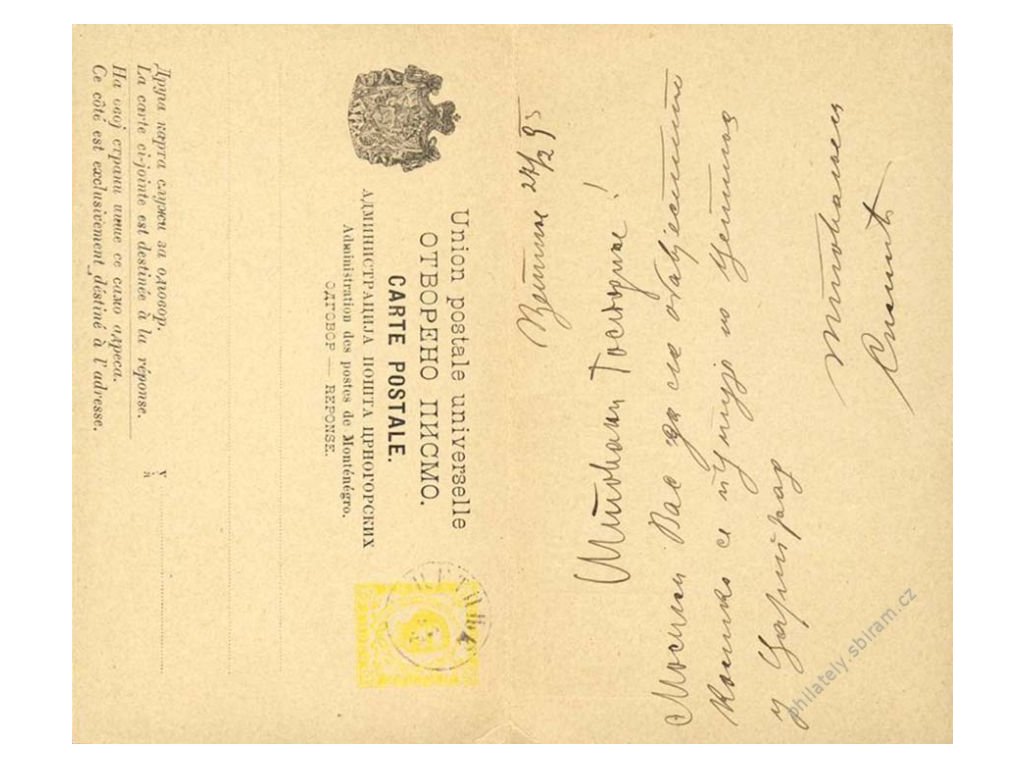 Union postale universelle
ОТВОРЕНО ПИСМО.
CARTE POSTALE.
АДМИНИСТРАЦИЈА ПОШТА ЦРНОГОРСКИХ
Administration des postes de Monténégro.
ОДГОВОР — REPONSE.
У
à
Друга карта служи за одговор.
La carte ci-jointe est destinée à la réponse.
На овој страни пише се само адреса.
Ce côté est exclusivement déstiné à l'adresse.
Цетиње 24/2 95
Штовани Господине!
Молим Вас да ме обавјестите
колико се путује из Цетиња
у Цариград
Штовањем
philately.sbiram.cz